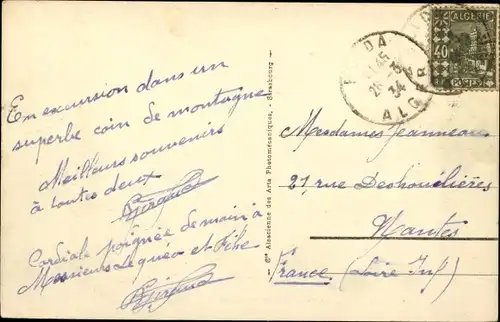 En excursion dans un
superbe coin de montagne
Meilleurs souvenirs
à toutes deux
Cordiale poignée de main à
Messieurs Lequéo et
Cie Alsacienne des Arts Photomécaniques, - Strasbourg -
ALGERIE
40
POSTES
DA
26 -5
34
ALGER
Mesdames Jeanneau
21, rue Deshoulières
Nantes
France (Loire Inf)